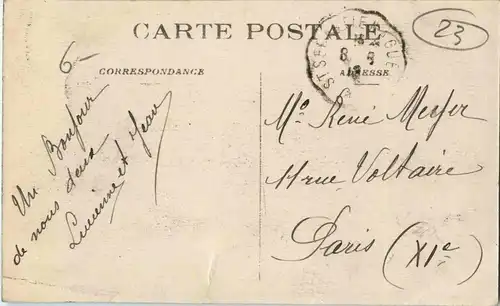 CARTE POSTALE
23
6-
CORRESPONDANCE
ADRESSE
Un Bonjour
de nous deux
Lucienne et Jean
Mr René Meyer
11 rue Voltaire
Paris (XIe)